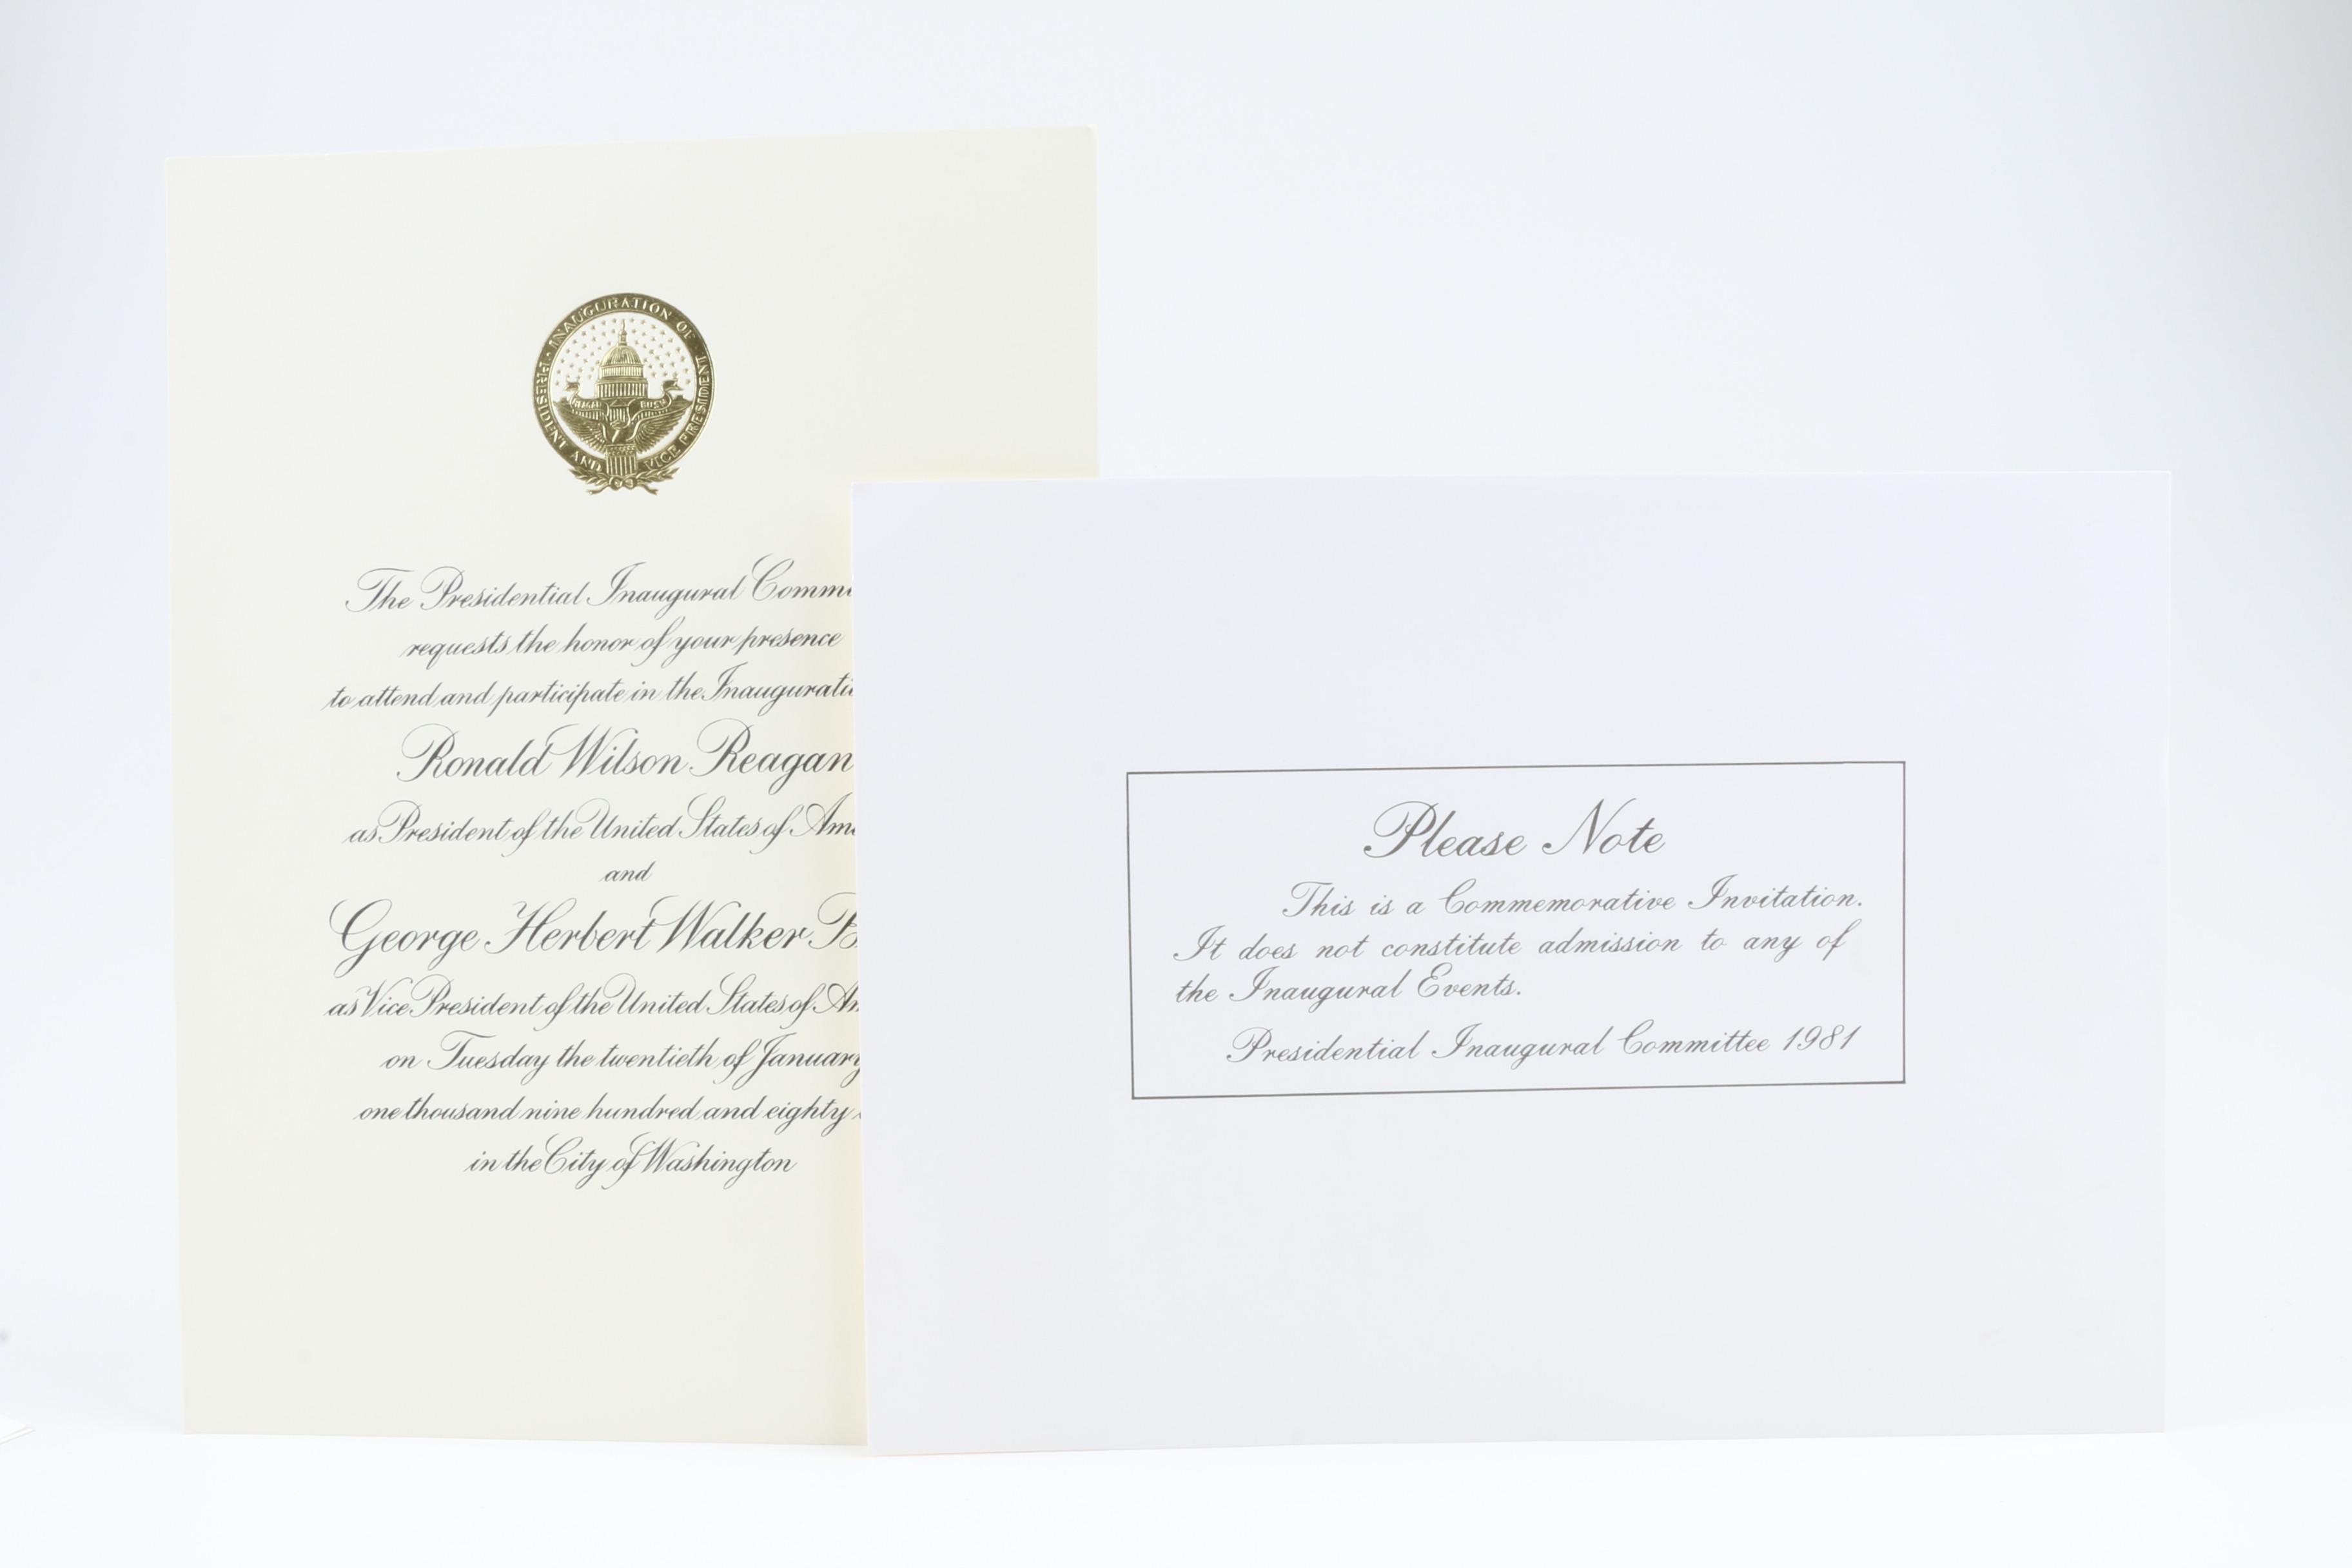 INAUGURATION OF PRESIDENT AND VICE PRESIDENT
REAGAN BUSH
The Presidential Inaugural Comm
requests the honor of your presence
to attend and participate in the Inaugurati
Ronald Wilson Reagan
as President of the United States of Am
and
George Herbert Walker B
as Vice President of the United States of A
on Tuesday the twentieth of January
one thousand nine hundred and eighty
in the City of Washington
Please Note
This is a Commemorative Invitation.
It does not constitute admission to any of
the Inaugural Events.
Presidential Inaugural Committee 1981